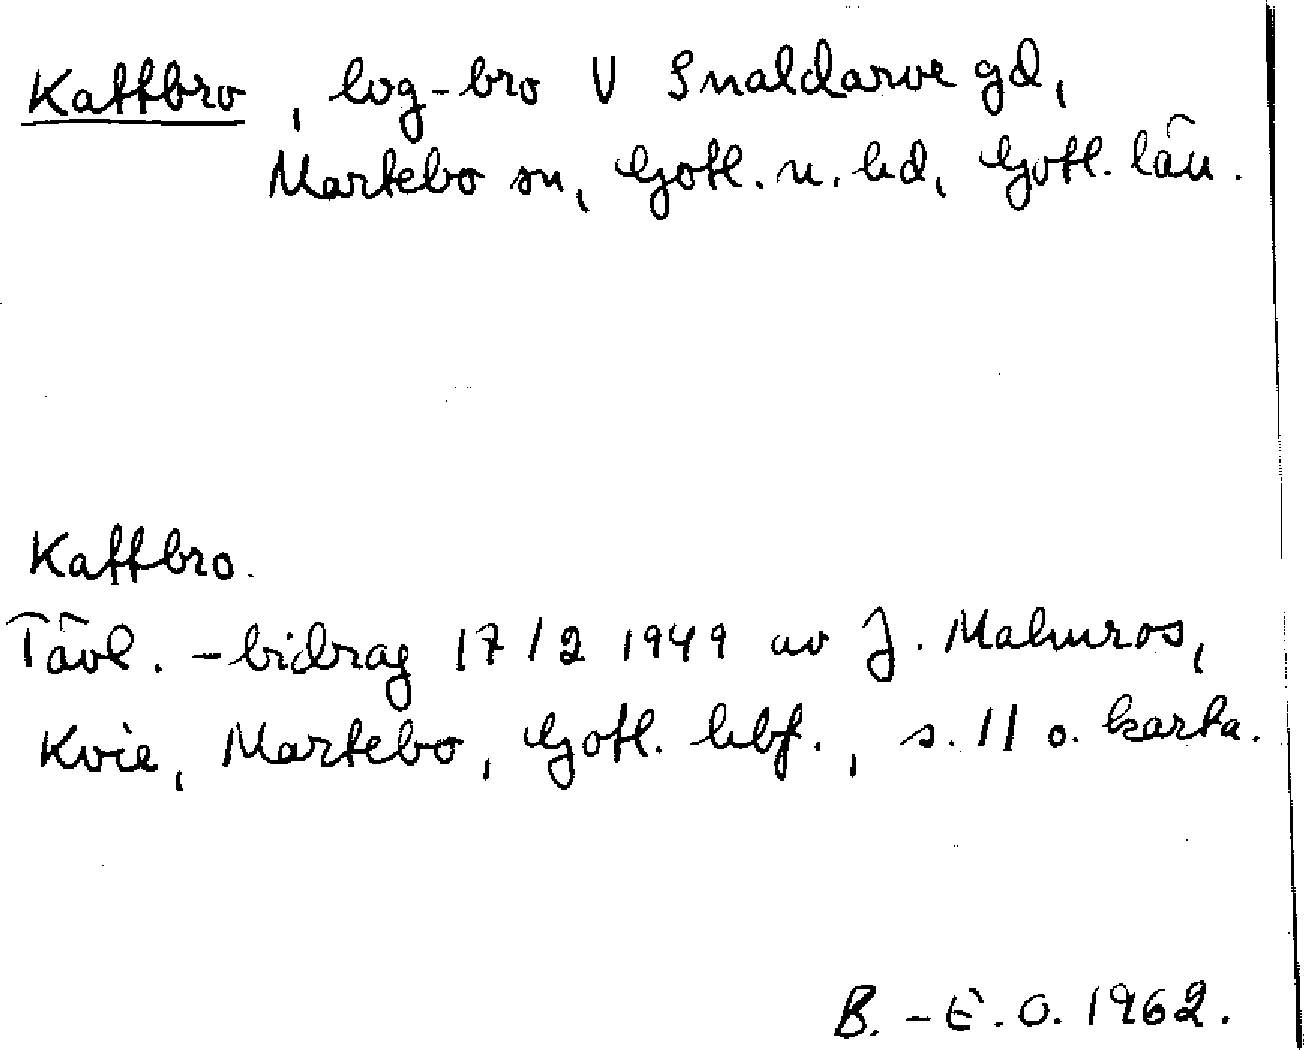 Kattbro, log-bro V Snaldarve gd,
Martebo sn, Gotl. n. hd, Gotl. län.
Kattbro.
Tävl.-bidrag 17/2 1949 av J. Malmros,
Kvie, Martebo, Gotl. hbf., s. 11 o. karta.
B.-E. O. 1962.